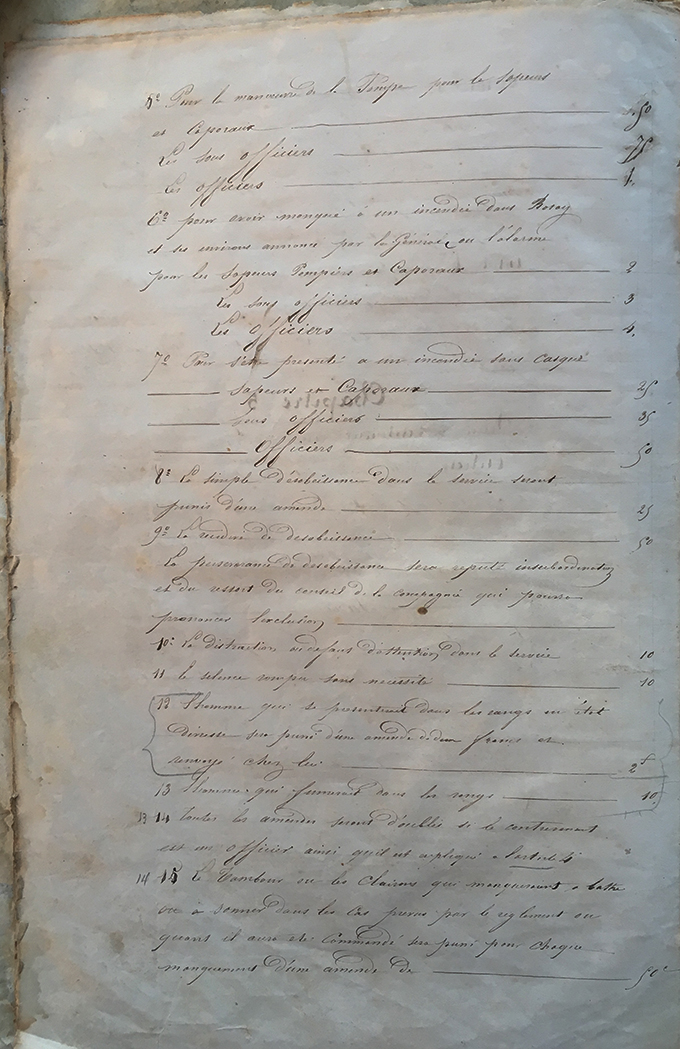 5º Pour la manœuvre de la Pompe pour les Sapeurs
et Caporaux 50
Les Sous officiers 75
Les officiers 1.
6º pour avoir manqué à un incendie dans Rosay
et ses environs annoncé par la Générale ou l'alarme
pour les Sapeurs Pompiers et Caporaux 2
Les Sous officiers 3
Les Officiers 4.
7º Pour s'être presenté a un incendie sans Casque
Sapeurs et Caporaux 25
Sous officiers 35
Officiers 50
8º La simple désobéissance dans le service seront
punis d'une amende 25
9º La récidive de desobeissance 50
La perseverance de desobeissance sera reputé insubordination
et du ressort du conseil de la compagnie qui pourra
prononcer l'exclusion
10º La distraction ou defaut d'attention dans le service 10
11 le silence rompu sans necessité 10
12 L'homme qui se presenterait dans les rangs en état
d'ivresse sera puni d'une amende de deux francs et
renvoyé chez lui 2 f
13 l'homme qui fumerait dans les rangs 10.
13 14 toutes les amendes seront doubles si le contrevenant
est un officier ainsi qu'il est expliqué a l'article 4
14 15 Le Tambour ou les Clairons qui manqueraient a battre
ou à sonner dans les Cas prevus par le reglement ou
quand il aura été Commandé sera puni pour chaque
manquement d'une amende de 50 c